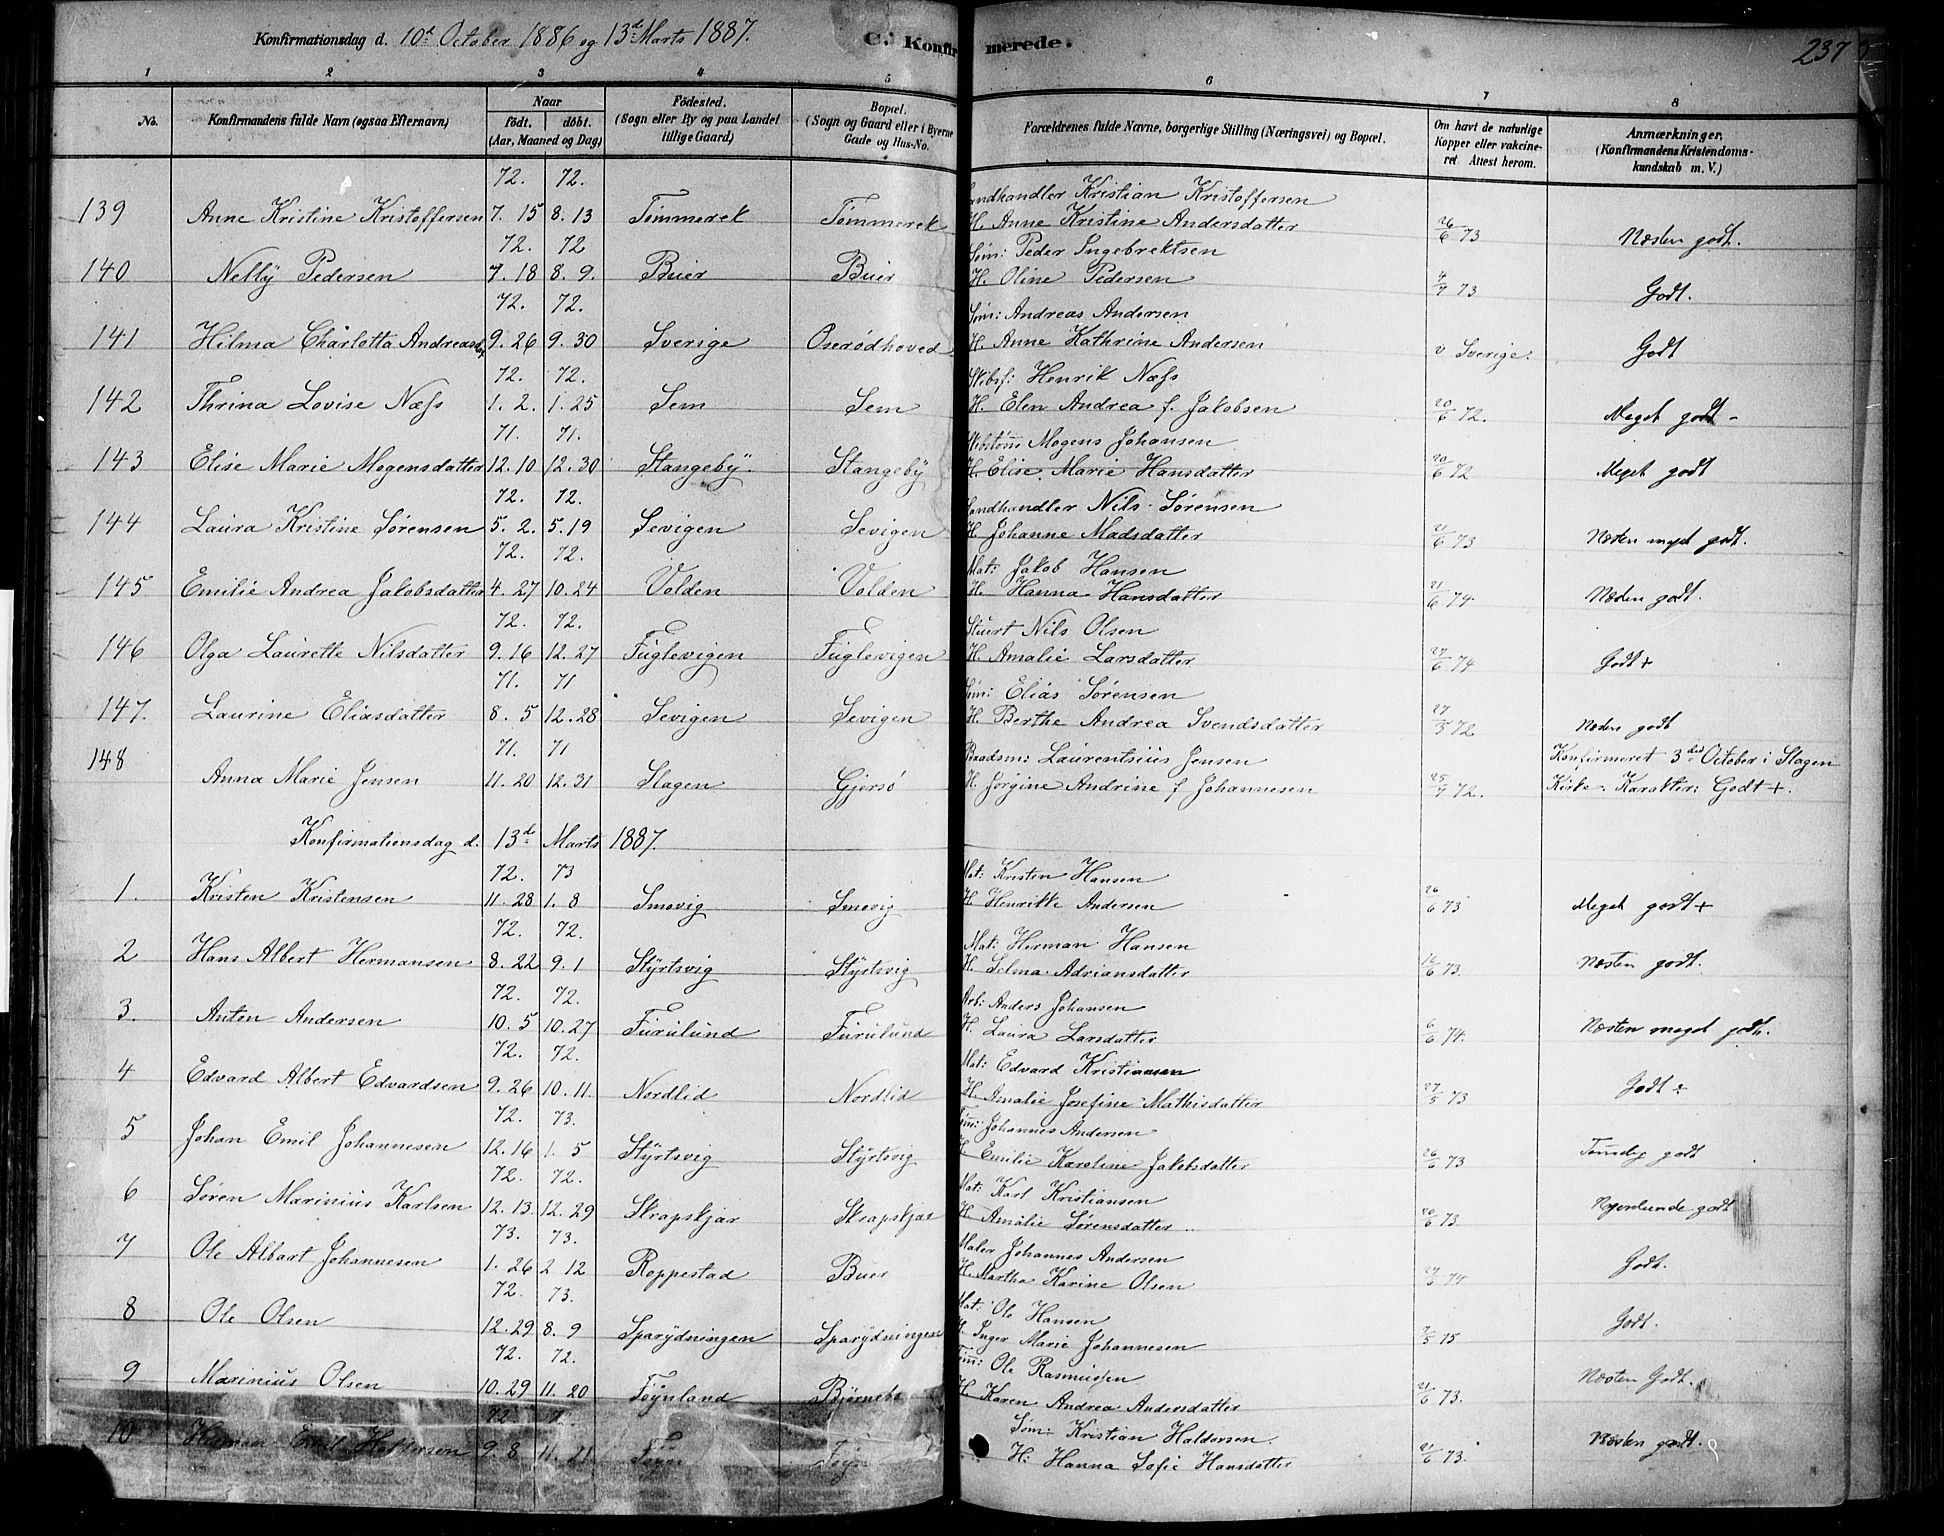 Konfirmationsdag d. 10d October 1886 og 13d Marts 1887.
C. Konfirmerede.
237
1 2 3 4 5 6 7 8
No.
Konfirmandens fulde Navn (ogsaa Efternavn)
Naar
født. døbt.
(Aar, Maaned og Dag)
Fødested.
(Sogn eller By og paa Landet
tillige Gaard)
Bopæl.
(Sogn og Gaard eller i Byerne
Gade og Hus-No.
Forældrenes fulde Navne, borgerlige Stilling (Næringsvei) og Bopæl.
Om havt de naturlige
Kopper eller vakcine-
ret. Attest herom.
Anmærkninger.
(Konfirmandens Kristendoms-
kundskab m. V.)
72. 72. Landhandler Kristian Kristoffersen
139 Anne Kristine Kristoffersen 7. 15 8. 13 Tømmerek Tømmerek H. Anne Kristine Andersdatter 26/6 73 Næsten godt.
72. 72 Søm: Peder Ingebrektsen
140 Nelly Pedersen 7. 18 8. 9. Buer Buer H. Oline Pedersen 4/7 73 Godt.
72. 72. Søm: Andreas Andersen
141 Hilma Charlotta Andreasd 9. 26 9. 30 Sverige Oserødhoved H. Anne Kathrine Andersen v Sverige. Godt
72. 72. Skibsf: Henrik Næss
142 Thrina Lovise Næss 1. 2. 1. 25 Sem Sem H. Elen Andrea f. Jakobsen 20/6 72. Meget godt -
71. 71. Skbstøm: Mogens Johansen
143 Elise Marie Mogensdatter 12. 10 12. 30 Stangeby. Stangeby H. Elise Marie Hansdatter 20/6 72 Meget godt
72. 72. Landhandler Nils Sørensen
144 Laura Kristine Sørensen 5. 2. 5. 19 Sevigen Sevigen H Johanne Madsdatter 21/6 73 Næsten meget godt.
72. 72. Mat: Jakob Hansen
145 Emilie Andrea Jakobsdatter 4. 27 10. 24 Volden Volden H. Hanna Hansdatter 21/6 74 Næsten godt.
72. 72. Stuert Nils Olsen
146 Olga Laurette Nilsdatter 9. 16 12. 27 Fuglevigen Fuglevigen H. Amalie Larsdatter 27/6 74 Godt +
71. 71 Søm: Elias Sørensen
147. Laurine Eliasdatter 8. 5 12. 28 Sevigen Sevigen H. Berthe Andrea Svendsdatter 27/5 72 Næsten godt
71. 71 Baadsm: Laurentsius Jensen Konfirmeret 3die October i Slagen
148 Anna Marie Jensen 11. 20 12. 31 Slagen Gjersø H Jørgine Andrine f Johannesen 25/7 72. Kirke. Karakter: Godt +.
Konfirmationsdag d. 13d Marts 1887.
72. 73 Mat: Kristen Hansen
1. Kristen Kristensen 11. 28 1. 8 Smovig Smovig H Henrikke Andersen 26/6 73 Meget godt +
72. 72. Mat: Herman Hansen
2 Hans Albert Hermansen 8. 22 9. 1 Styrtsvig Styrtsvig H. Selma Adriansdatter 12/6 73. Næsten godt.
72. 72. Arb: Anders Johansen
3. Anton Andersen 10. 5 10. 27 Furulund Furulund H. Laura Larsdatter 6/6 74. Næsten meget godt.
72. 72. Mat: Edvard Kristiansen
4 Edvard Albert Edvardsen 9. 26 10. 11. Nordlid Nordlid H. Amalie Josefine Mathisdatter 27/5 73 Godt ÷
72. 73. Tøm: Johannes Andersen
5 Johan Emil Johannesen 12. 16 1. 5 Styrtsvig Styrtsvig H. Emilie Karoline Jakobsdatter 26/6 73 Temmelig godt
72. 72. Mat: Karl Kristiansen
6 Søren Marinius Karlsen 12. 13. 12. 29 Skrapskjær Skrapskjær H. Amalie Sørensdatter 20/6 73. Nogenlunde godt
73. 73. Maler Johannes Andersen
7 Ole Albart Johannesen 1. 26 2 12 Roppestad Buer H. Martha Karine Olsen 27/6 74 Godt.
72. 73. Mat: Ole Hansen
8 Ole Olsen 12. 29 8. 9 Sparydningen Sparydningen H Inger Marie Johannesen 7/5 75 Godt.
72. 72. Tøm: Ole Rasmussen
9 Marinius Olsen 10. 29 11. 20 Føynland Bjørnebo H. Karen Andrea Andersdatter 21/6 73. Næsten Godt.
72 Søm: Kristian Haldorsen.
10 Herman Emil 9. 8 11. 21. Føyn H: Hanna Sofie Hansdatter 21/6 73. Næsten godt.